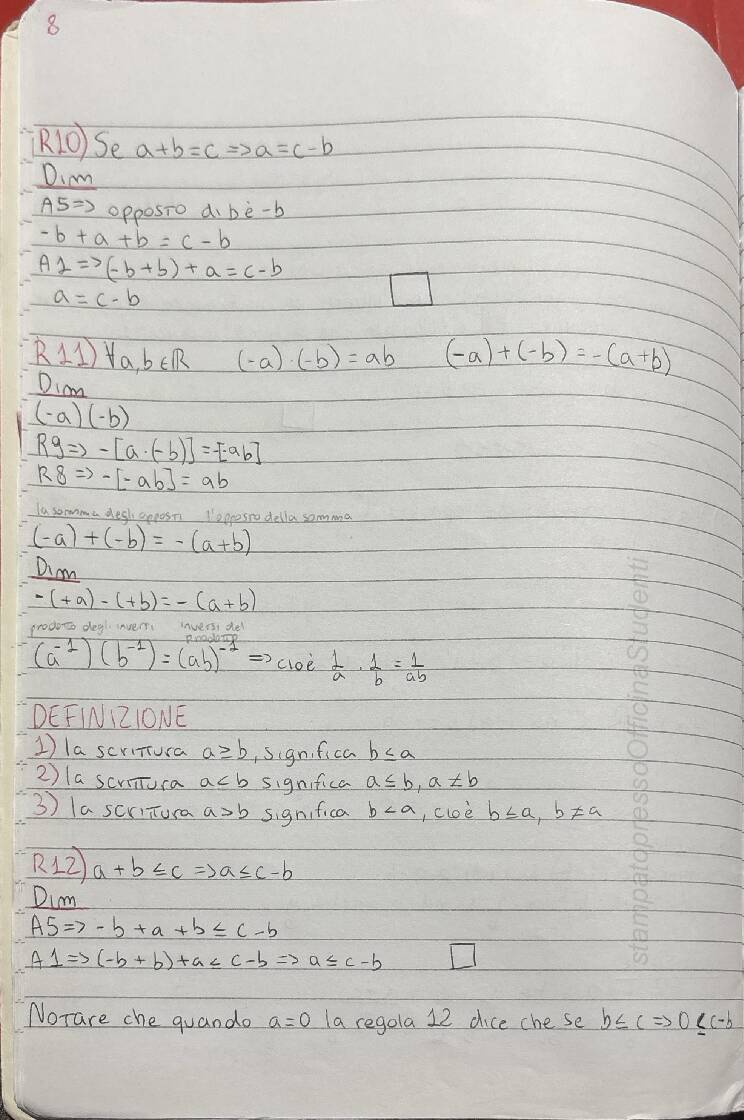 8
R10) Se a+b=c=>a=c-b
Dim
A5=> opposto di b è -b
-b+a+b=c-b
A1=>(-b+b)+a=c-b
a=c-b
R11) ∀a,b∈ℝ (-a)·(-b)=ab (-a)+(-b)=-(a+b)
Dim
(-a)(-b)
R9=> -[a·(-b)]=-[-ab]
R8=> -[-ab]=ab
la somma degli opposti l'opposto della somma
(-a)+(-b)=-(a+b)
Dim
-(+a)-(+b)=-(a+b)
prodotto degli inversi inversi del prodotto
(a⁻¹)(b⁻¹)=(ab)⁻¹ => cioè 1/a · 1/b = 1/ab
DEFINIZIONE
1) la scrittura a≥b, significa b≤a
2) la scrittura a<b significa a≤b, a≠b
3) la scrittura a>b significa b<a, cioè b≤a, b≠a
R12) a+b≤c=>a≤c-b
Dim
A5=> -b+a+b≤c-b
A1=>(-b+b)+a≤c-b=>a≤c-b
Notare che quando a=0 la regola 12 dice che se b≤c=>0≤c-b
stampatopressoOfficinaStudenti